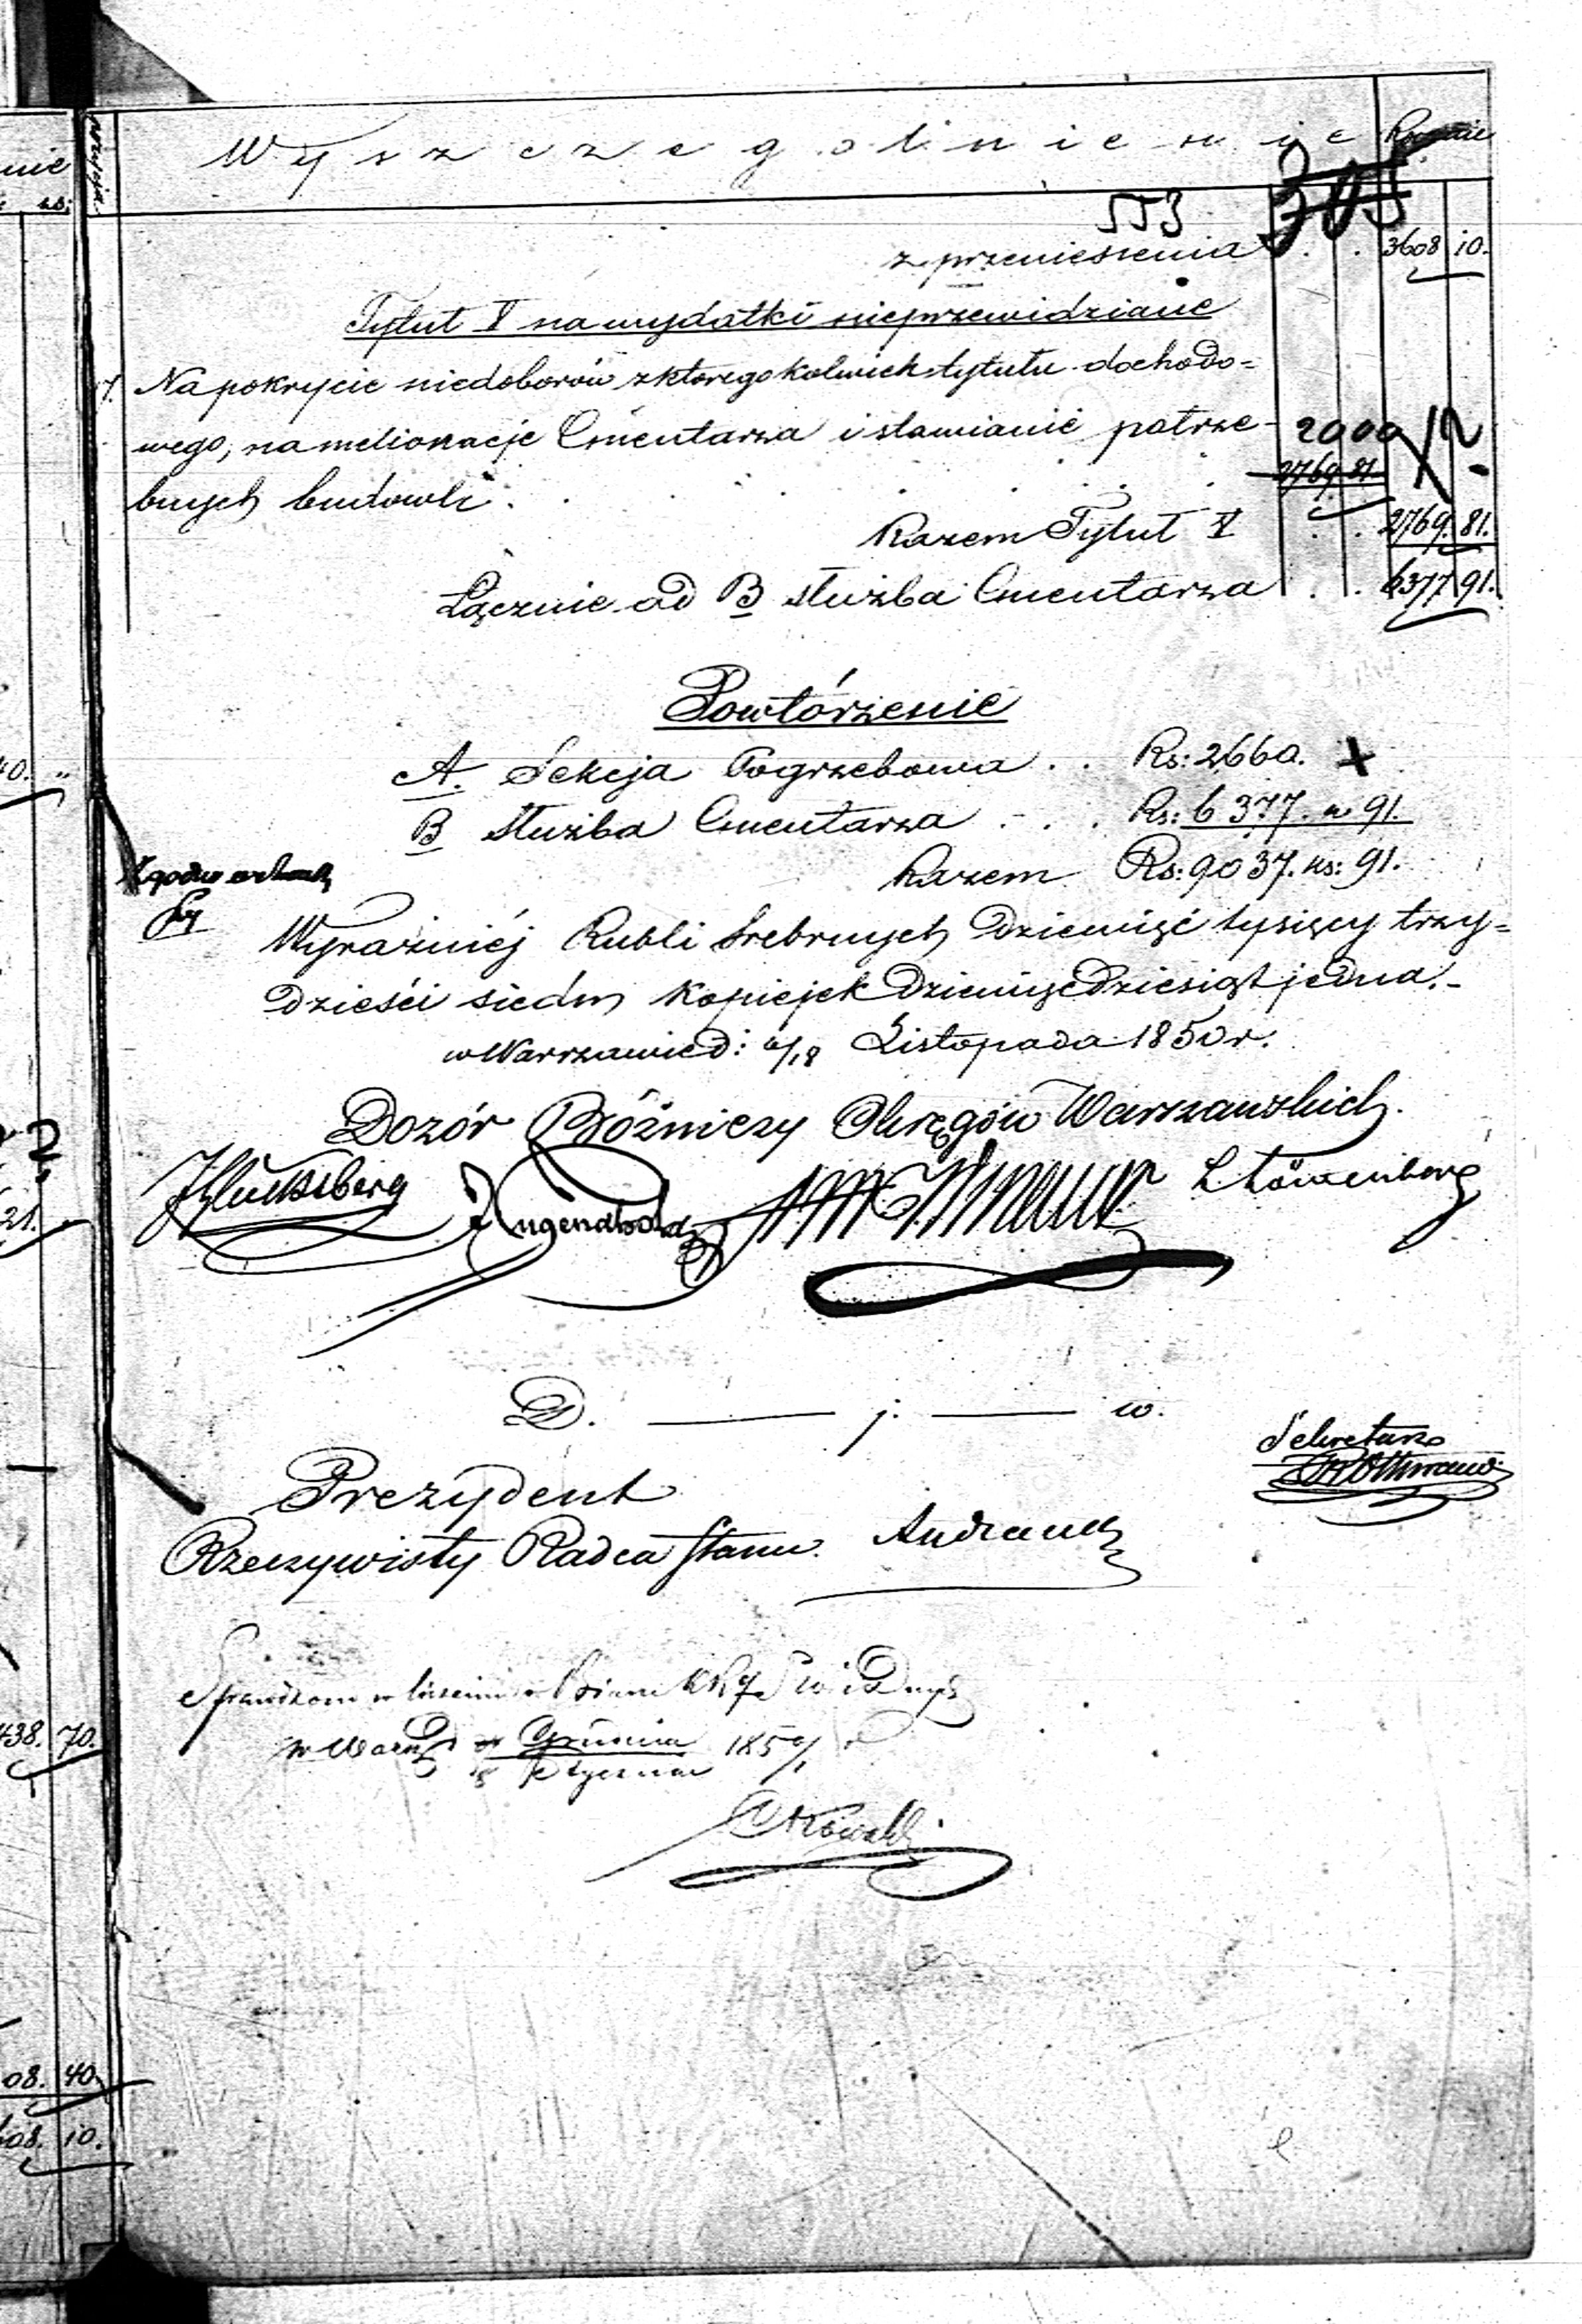 Wyszczególnienie Rocznie
553 305
z przeniesienia . . 3608 10.
Tytuł V na wydatki nieprzewidziane
7. Na pokrycie niedoborów z któregokolwiek tytułu dochodo=
wego, na melioracje Cmentarza i stawianie potrze- 2000
bnych budowli . . . . . . 2769 81
Razem Tytuł V . . 2769. 81.
Łącznie ad B służba Cmentarza . . 6377 91.
Powtórzenie
A. Sekcja Pogrzebowa . . Rs: 2660.
B Służba Cmentarza . . . Rs: 6377. k 91.
Razem Rs: 9037. ks: 91.
Wyraźniéj Rubli Srebrnych Dziewięć tysięcy trzy=
dzieści siedm Kopiejek Dziewięćdziesiąt jedna.-
w Warszawie d: 6/18 Listopada 1850 r.
Dozór Bóźniczy Okręgów Warszawskich.
J Glücksberg Jugendhold L Löwenberg
D. — j. — w.
Sekretarz
Prezydent
Rzeczywisty Radca Stanu. Andrault
w Warsz Grudnia 1850/1 r
Stycznia
nie
40. "
21. "
438. 70.
08. 40
608. 10.